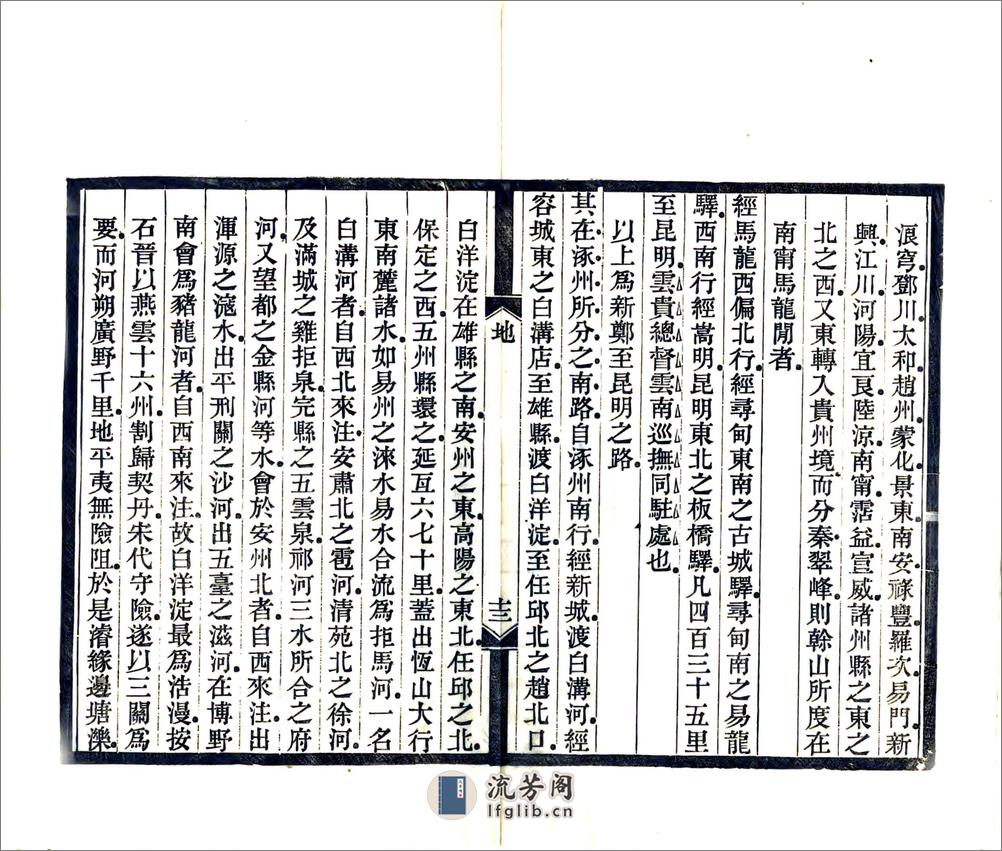 浪穹鄧川太和趙州蒙化景東南安祿豐羅次易門新
興江川河陽宜良陸涼南甯霑益宣威諸州縣之東之
北之西又東轉入貴州境而分秦翠峰則幹山所度在
南甯馬龍閒者
經馬龍西偏北行經尋甸東南之古城驛尋甸南之易龍
驛西南行經嵩明昆明東北之板橋驛凡四百三十五里
至昆明雲貴總督雲南巡撫同駐處也
以上爲新鄭至昆明之路
其在涿州所分之南路自涿州南行經新城渡白溝河經
容城東之白溝店至雄縣渡白洋淀至任邱北之趙北口
地
十三
白洋淀在雄縣之南安州之東高陽之東北任邱之北
保定之西五州縣環之延亙六七十里蓋出恆山大行
東南麓諸水如易州之淶水易水合流爲拒馬河一名
白溝河者自西北來注安肅北之雹河清苑北之徐河
及滿城之雞拒泉完縣之五雲泉祁河三水所合之府
河又望都之金縣河等水會於安州北者自西來注出
渾源之滱水出平刑關之沙河出五臺之滋河在博野
南會爲豬龍河者自西南來注故白洋淀最爲浩漫按
石晉以燕雲十六州割歸契丹宋代守險遂以三關爲
要而河朔廣野千里地平夷無險阻於是濬緣邊塘濼
流芳阁
lfglib.cn